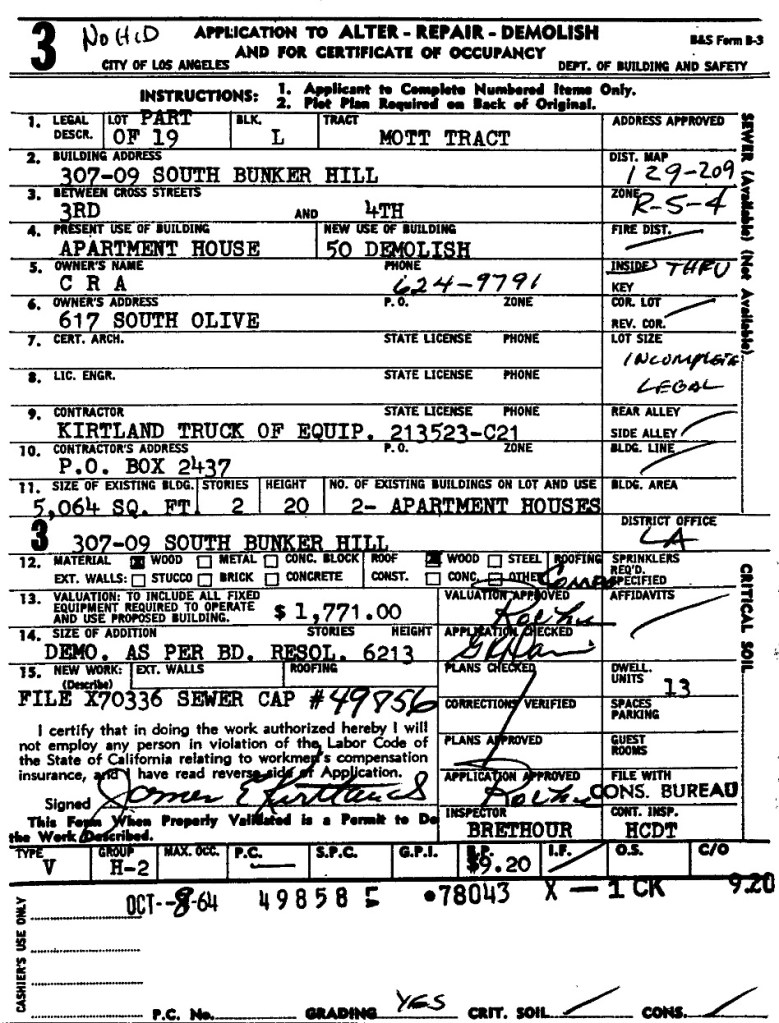 3 No HCD APPLICATION TO ALTER - REPAIR - DEMOLISH B&S Form B-3
AND FOR CERTIFICATE OF OCCUPANCY
CITY OF LOS ANGELES DEPT. OF BUILDING AND SAFETY
INSTRUCTIONS: 1. Applicant to Complete Numbered Items Only.
2. Plot Plan Required on Back of Original.
1. LEGAL DESCR. LOT PART OF 19 BLK. L TRACT MOTT TRACT ADDRESS APPROVED
2. BUILDING ADDRESS DIST. MAP
307-09 SOUTH BUNKER HILL 129-209
3. BETWEEN CROSS STREETS ZONE
3RD AND 4TH R-5-4
4. PRESENT USE OF BUILDING NEW USE OF BUILDING FIRE DIST.
APARTMENT HOUSE 50 DEMOLISH
5. OWNER'S NAME PHONE INSIDE THRU
C R A 624-9791 KEY
6. OWNER'S ADDRESS P.O. ZONE COR. LOT
617 SOUTH OLIVE REV. COR.
7. CERT. ARCH. STATE LICENSE PHONE LOT SIZE
INCOMPLETE
8. LIC. ENGR. STATE LICENSE PHONE LEGAL
9. CONTRACTOR STATE LICENSE PHONE REAR ALLEY
KIRTLAND TRUCK OF EQUIP. 213523-C21 SIDE ALLEY
10. CONTRACTOR'S ADDRESS P.O. ZONE BLDG. LINE
P.O. BOX 2437
11. SIZE OF EXISTING BLDG. STORIES HEIGHT NO. OF EXISTING BUILDINGS ON LOT AND USE BLDG. AREA
5,064 SQ. FT. 2 20 2- APARTMENT HOUSES
SEWER (Available) (Not Available)
3 307-09 SOUTH BUNKER HILL DISTRICT OFFICE
LA
12. MATERIAL WOOD METAL CONC. BLOCK ROOF WOOD STEEL ROOFING SPRINKLERS
EXT. WALLS: STUCCO BRICK CONCRETE CONST. CONC. OTHER REQ'D. SPECIFIED
13. VALUATION: TO INCLUDE ALL FIXED VALUATION APPROVED AFFIDAVITS
EQUIPMENT REQUIRED TO OPERATE
AND USE PROPOSED BUILDING. $ 1,771.00
14. SIZE OF ADDITION STORIES HEIGHT APPLICATION CHECKED
DEMO. AS PER BD. RESOL. 6213
15. NEW WORK: (Describe) EXT. WALLS ROOFING PLANS CHECKED DWELL. UNITS 13
FILE X70336 SEWER CAP #49856 CORRECTIONS VERIFIED SPACES PARKING
I certify that in doing the work authorized hereby I will
not employ any person in violation of the Labor Code of PLANS APPROVED GUEST ROOMS
the State of California relating to workmen's compensation
insurance, and I have read reverse side of Application. APPLICATION APPROVED FILE WITH
CONS. BUREAU
Signed James E Kirtland
This Form When Properly Validated is a Permit to Do INSPECTOR CONT. INSP.
the Work Described. BRETHOUR HCDT
CRITICAL SOIL
TYPE GROUP MAX. OCC. P.C. S.P.C. G.P.I. B.P. I.F. O.S. C/O
V H-2 — $9.20
CASHIER'S USE ONLY
OCT--8-64 49858 E •78043 X — 1 CK 9.20
P.C. No. GRADING YES CRIT. SOIL CONS.